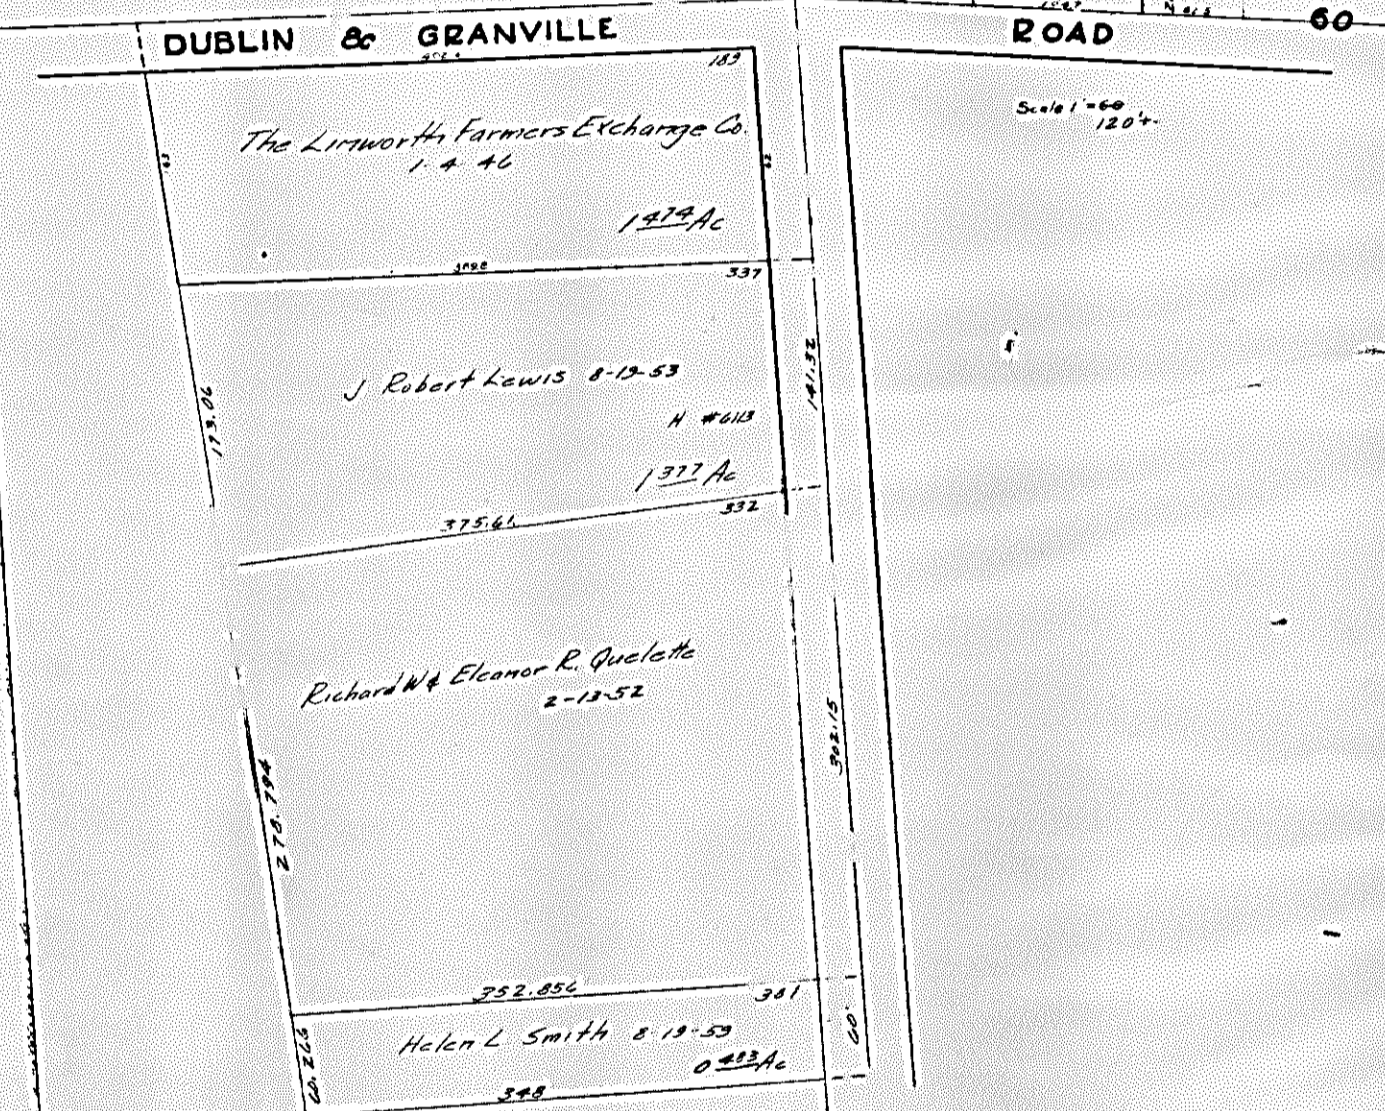 DUBLIN & GRANVILLE ROAD 60
189
Scale 1"=60
120'+-
The Linworth Farmers Exchange Co.
1-4-46
1 474 Ac
337
J Robert Lewis 8-19-53
H #6113
1 377 Ac
173.06
141.32
375.61
332
Richard W & Eleanor R. Quelette
2-13-52
278.794
302.15
352.856
381
Helen L Smith 8-19-59
0 483 Ac
60.266
60'
348